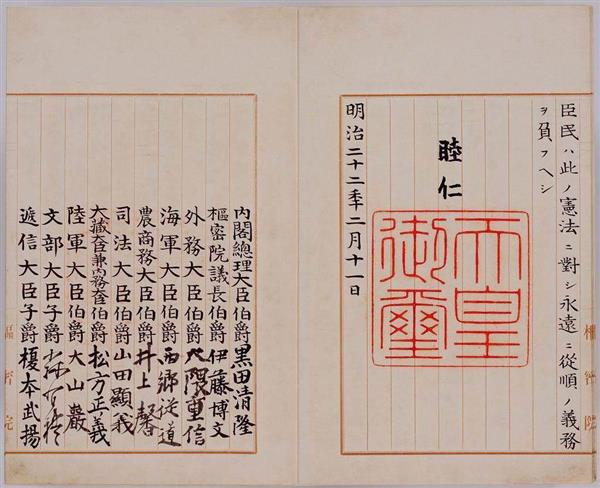 樞密院
臣民ハ此ノ憲法ニ對シ永遠ニ從順ノ義務
ヲ負フヘシ
睦仁
天皇
御璽
明治二十二年二月十一日
內閣總理大臣伯爵黑田清隆
樞密院議長伯爵伊藤博文
外務大臣伯爵大隈重信
海軍大臣伯爵西鄉從道
農商務大臣伯爵井上馨
司法大臣伯爵山田顯義
大藏大臣兼內務大臣伯爵松方正義
陸軍大臣伯爵大山巖
文部大臣子爵森有礼
遞信大臣子爵榎本武揚
樞密院